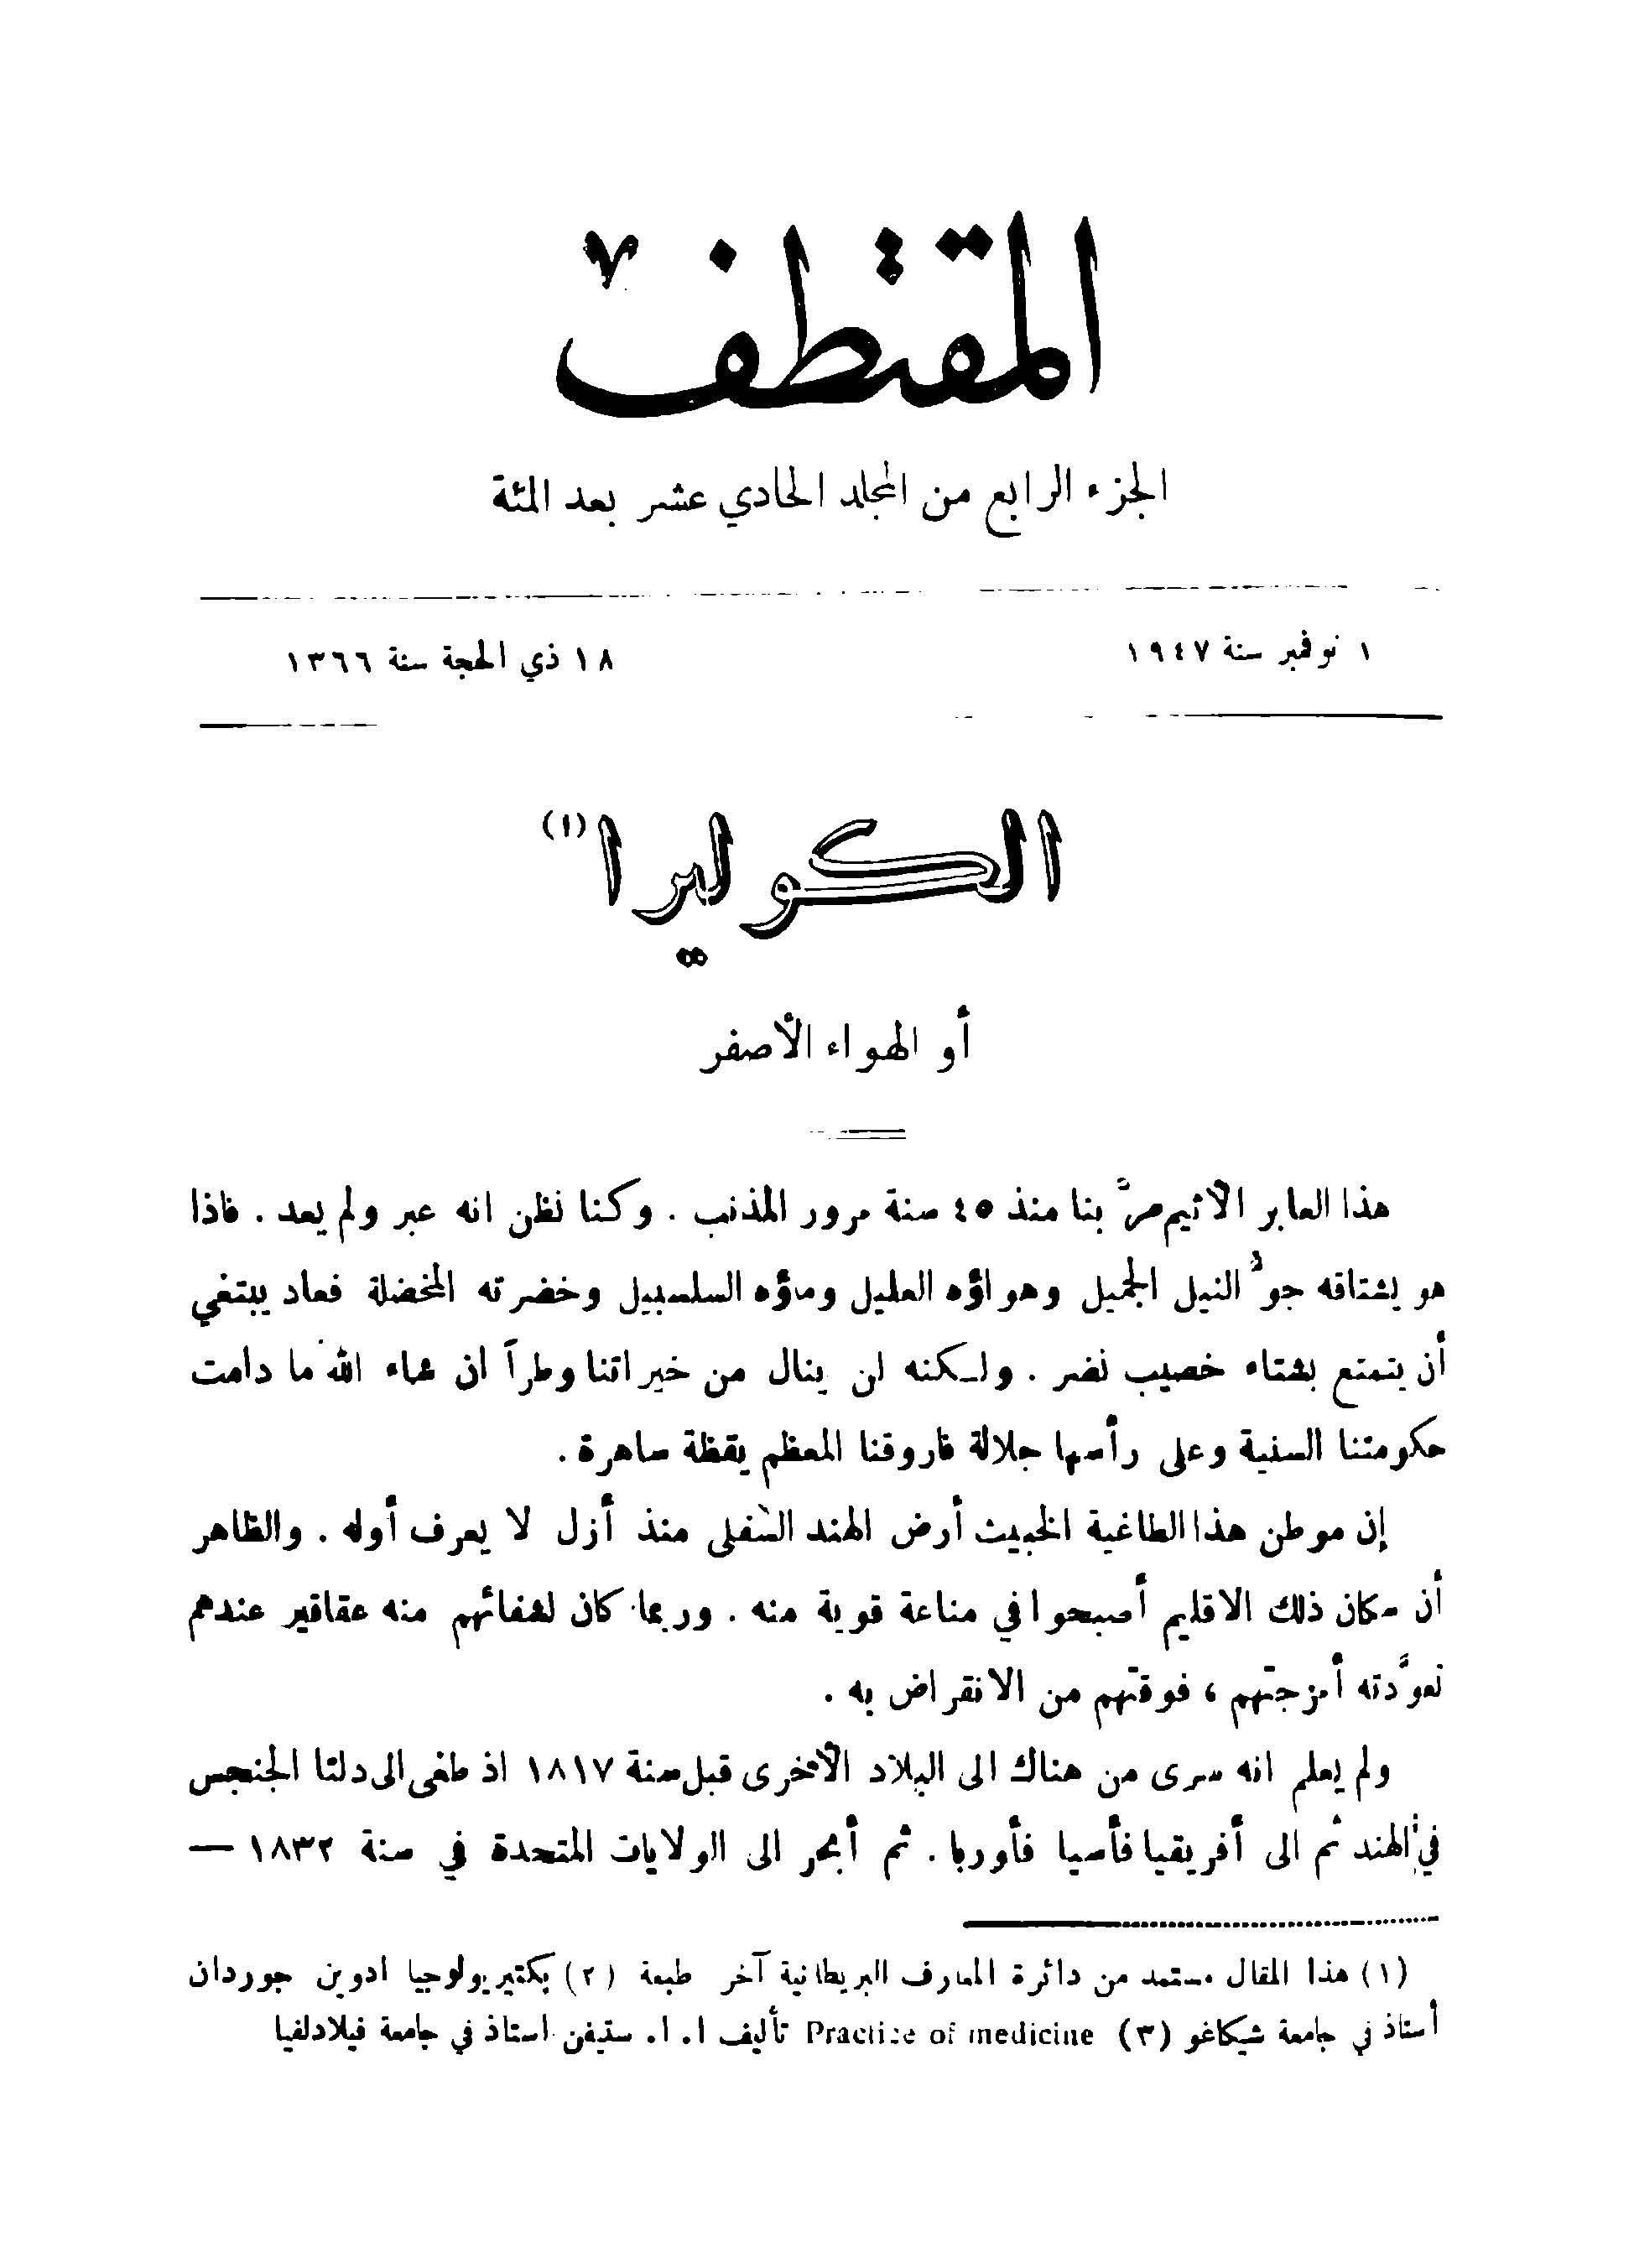 المقتطف
الجزء الرابع من المجلد الحادي عشر بعد المئة
١ نوفمبر سنة ١٩٤٧
١٨ ذي الحجة سنة ١٣٦٦
الكوليرا (١)
أو الهواء الأصفر
هذا العابر الأثيم مرَّ بنا منذ ٤٥ سنة مرور المذنب . وكنا نظن انه عبر ولم يعد . فاذا
هو يشتاقه جوُّ النيل الجميل وهواؤه العليل وماؤه السلسبيل وخضرته المخضلة فعاد يبتغي
أن يتمتع بشتاء خصيب نضر . ولكنه لن ينال من خيراتنا وطراً ان شاء الله ما دامت
حكومتنا السنية وعلى رأسها جلالة فاروقنا المعظم يقظة ساهرة .
إن موطن هذا الطاغية الخبيث أرض الهند السفلى منذ أزل لا يعرف أوله . والظاهر
أن سكان ذلك الاقليم أصبحوا في مناعة قوية منه . وربما كان لشفائهم منه عقاقير عندهم
تعوَّدته أمزجتهم ، فوقتهم من الانقراض به .
ولم يعلم انه سرى من هناك الى البلاد الأخرى قبل سنة ١٨١٧ اذ طغى الى دلتا الجنجس
في الهند ثم الى أفريقيا فأسيا فأوربا . ثم أبحر الى الولايات المتحدة في سنة ١٨٣٢ —
(١) هذا المقال مستمد من دائرة المعارف البريطانية آخر طبعة (٢) بكتيريولوجيا ادوين جوردان
أستاذ في جامعة شيكاغو (٣) Practice of medicine تأليف ا . ا . ستيفن استاذ في جامعة فيلادلفيا